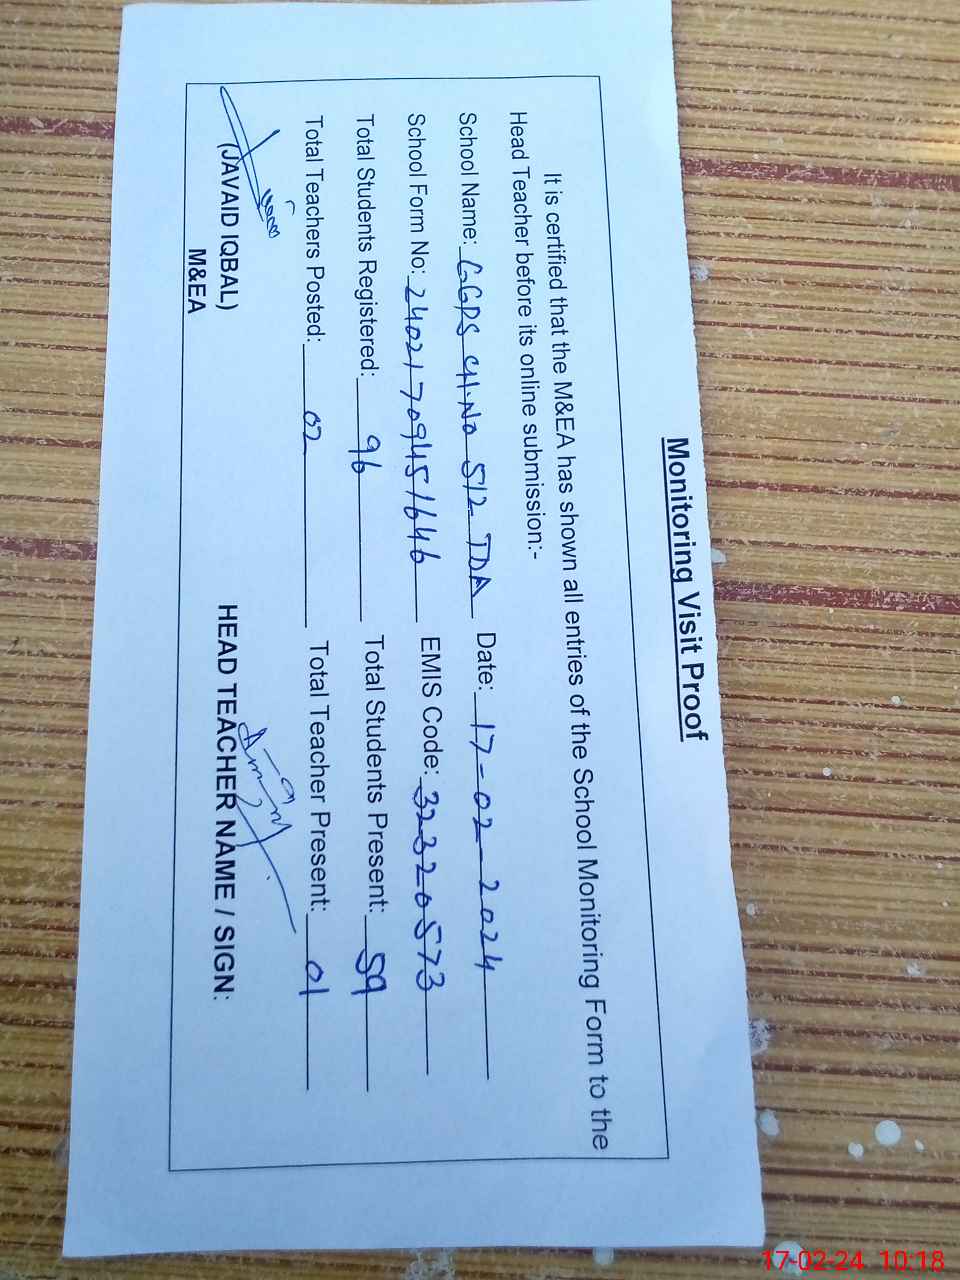 Monitoring Visit Proof
It is certified that the M&EA has shown all entries of the School Monitoring Form to the
Head Teacher before its online submission:-
School Name: GGPS CH.No 512 TDA Date: 17-02-2024
School Form No: 24021709451646 EMIS Code: 32320573
Total Students Registered: 96 Total Students Present: 59
Total Teachers Posted: 02 Total Teacher Present: 01
(JAVAID IQBAL) HEAD TEACHER NAME / SIGN:
M&EA
17-02-24 10:18